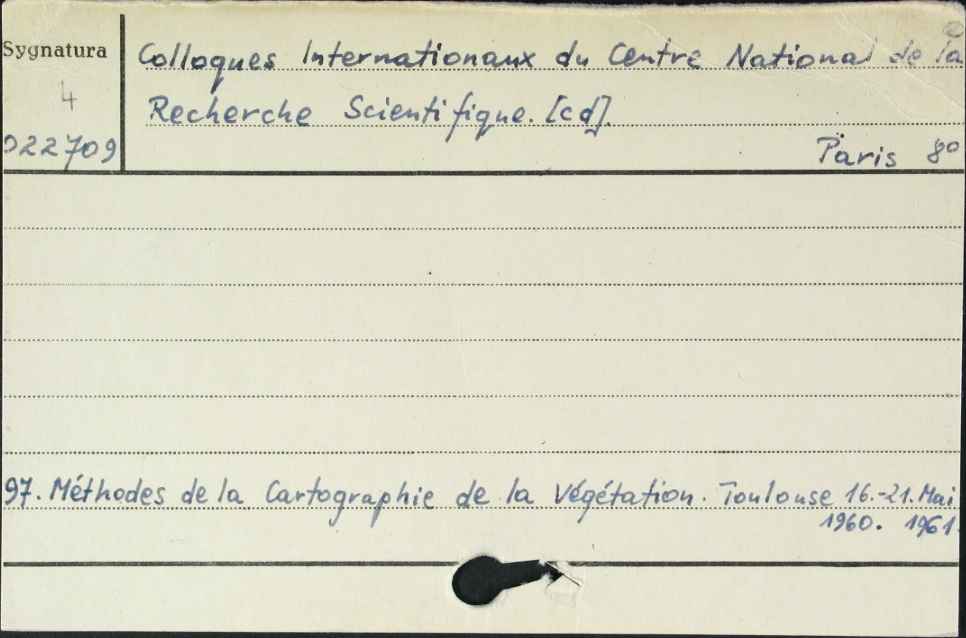 Sygnatura
4
022709
Colloques Internationaux du Centre National de la
Recherche Scientifique. [cd].
Paris 8°
97. Méthodes de la Cartographie de la Végétation. Toulouse 16.-21. Mai
1960. 1961.